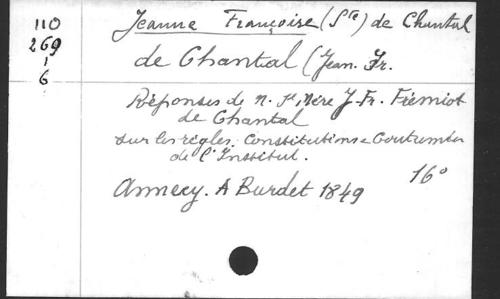 110
269
1
6
Jeanne Françoise (Ste) de Chantal
de Chantal (Jean. Fr.
Réponses de N. Ste Mère J-Fr. Frémiot
de Chantal
sur les règles, Constitutions & Coutumes
de l'Institut.
16°
Annecy. A Burdet 1849